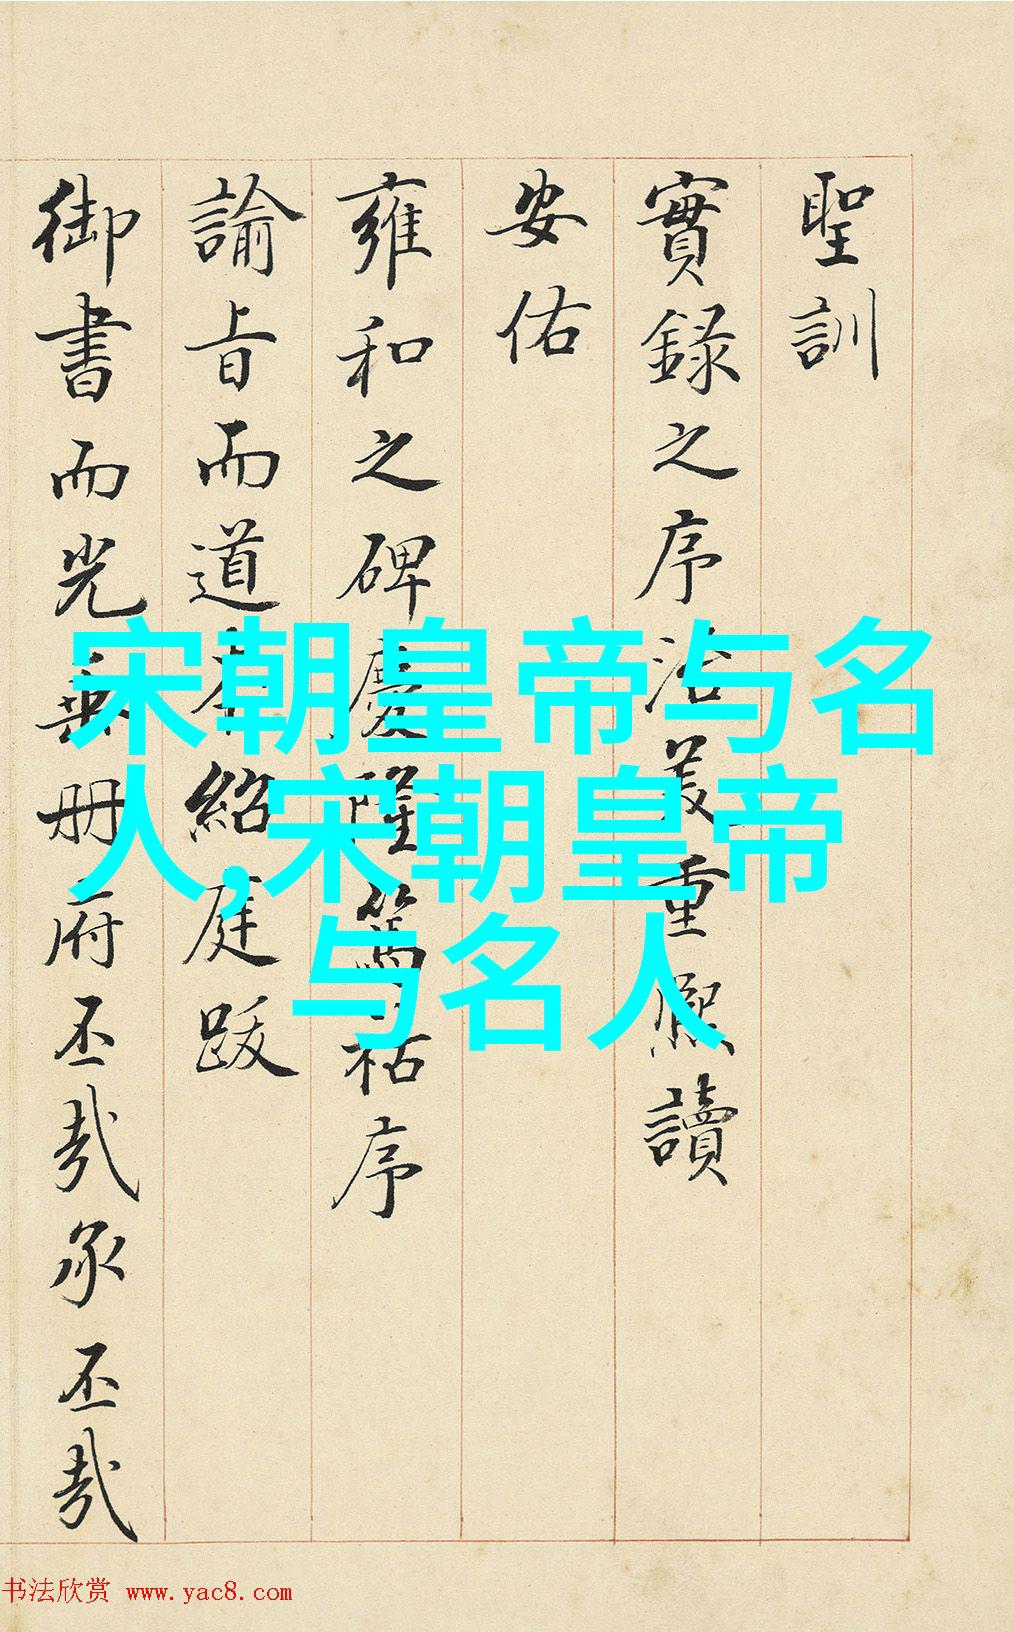 聖訓
實録之序治美重熙讀
安佑
雍和之碑慶隆篤祜序
諭旨而道紹庭跋
御書而光垂册府丕哉承丕哉
宋朝皇帝与名
人,宋朝皇帝
与名人
书法欣赏 www.yac8.com